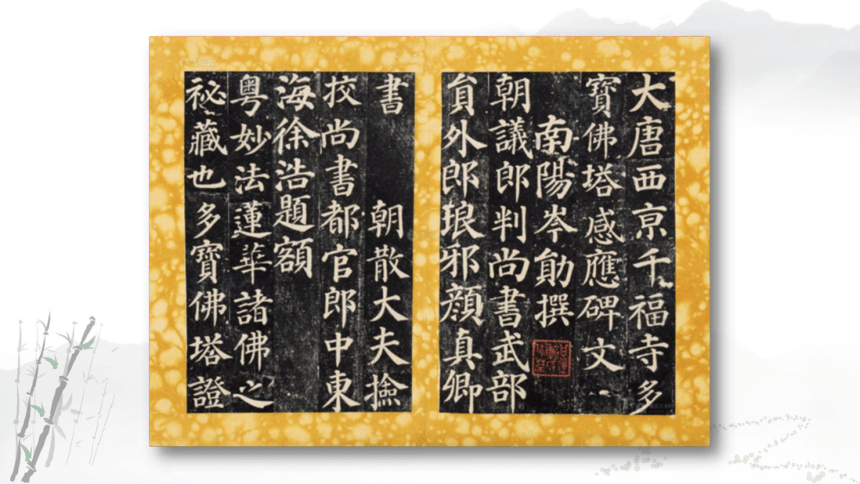 大唐西亰千福寺多
寶佛塔感應碑文
南陽岑勛撰
朝議郎判尚書武部
貟外郎琅邪顏真卿
書 朝散大夫撿
挍尚書都官郎中東
海徐浩題額
粵妙法蓮華諸佛之
祕藏也多寶佛塔證